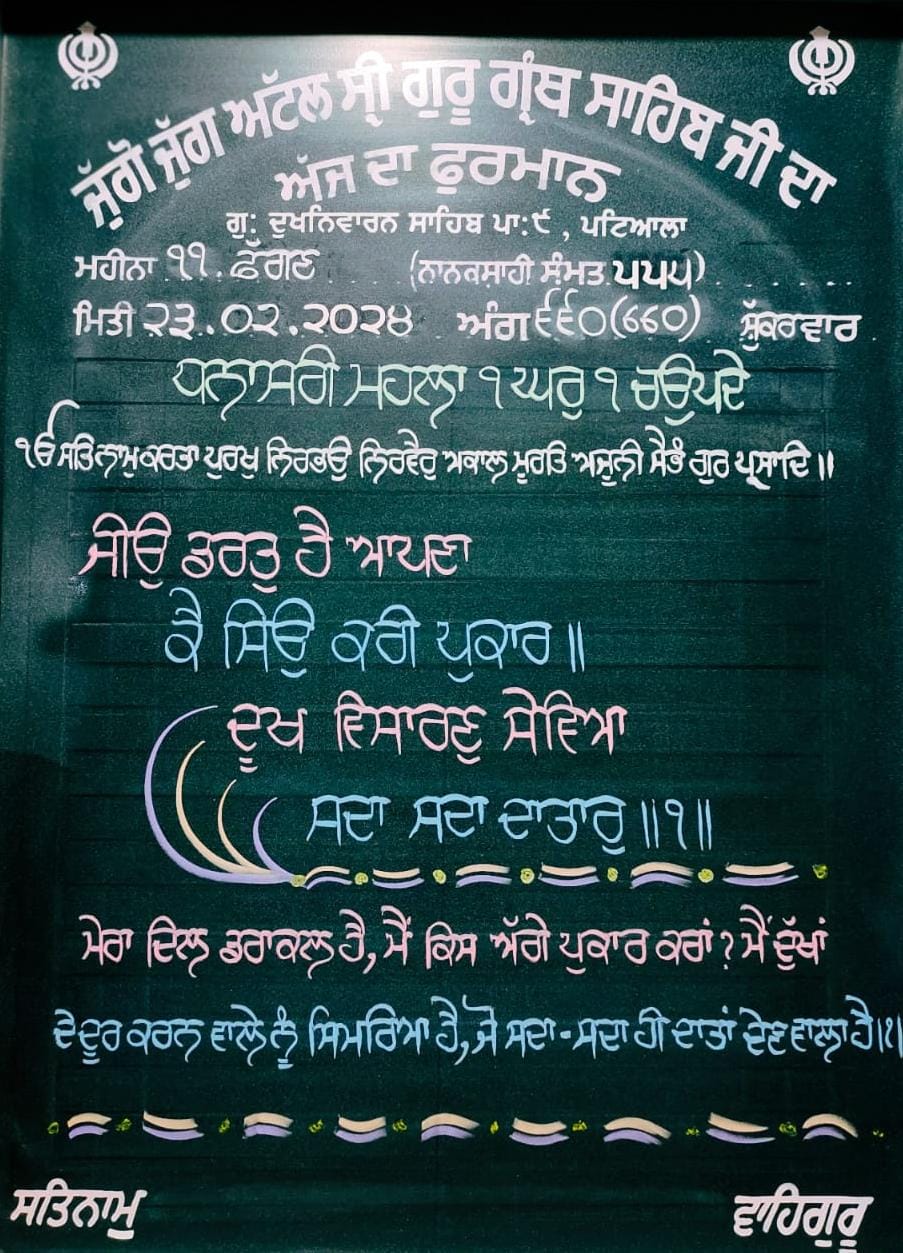 ਜੁੱਗੋ ਜੁੱਗ ਅਟੱਲ ਸ੍ਰੀ ਗੁਰੂ ਗ੍ਰੰਥ ਸਾਹਿਬ ਜੀ ਦਾ
ਅੱਜ ਦਾ ਫੁਰਮਾਨ
ਗੁ: ਦੁਖਨਿਵਾਰਨ ਸਾਹਿਬ ਪਾ:੯, ਪਟਿਆਲਾ
ਮਹੀਨਾ ੧੧. ਫੱਗਣ (ਨਾਨਕਸਾਹੀ ਸੰਮਤ ੫੫੫)
ਮਿਤੀ ੨੩.੦੨.੨੦੨੪ ਅੰਗ ੬੬੦(660) ਸ਼ੁੱਕਰਵਾਰ
ਧਨਾਸਰੀ ਮਹਲਾ ੧ ਘਰੁ ੧ ਚਉਪਦੇ
ੴ ਸਤਿਨਾਮੁ ਕਰਤਾ ਪੁਰਖੁ ਨਿਰਭਉ ਨਿਰਵੈਰੁ ਅਕਾਲ ਮੂਰਤਿ ਅਜੂਨੀ ਸੈਭੰ ਗੁਰ ਪ੍ਰਸਾਦਿ॥
ਜੀਉ ਡਰਤੁ ਹੈ ਆਪਣਾ
ਕੈ ਸਿਉ ਕਰੀ ਪੁਕਾਰ॥
ਦੂਖ ਵਿਸਾਰਣੁ ਸੇਵਿਆ
ਸਦਾ ਸਦਾ ਦਾਤਾਰੁ॥੧॥
ਮੇਰਾ ਦਿਲ ਡਰਾਕਲ ਹੈ, ਮੈਂ ਕਿਸ ਅੱਗੇ ਪੁਕਾਰ ਕਰਾਂ? ਮੈਂ ਦੁੱਖਾਂ
ਦੇ ਦੂਰ ਕਰਨ ਵਾਲੇ ਨੂੰ ਸਿਮਰਿਆ ਹੈ, ਜੋ ਸਦਾ-ਸਦਾ ਹੀ ਦਾਤਾਂ ਦੇਣ ਵਾਲਾ ਹੈ।੧।
ਸਤਿਨਾਮੁ ਵਾਹਿਗੁਰੂ